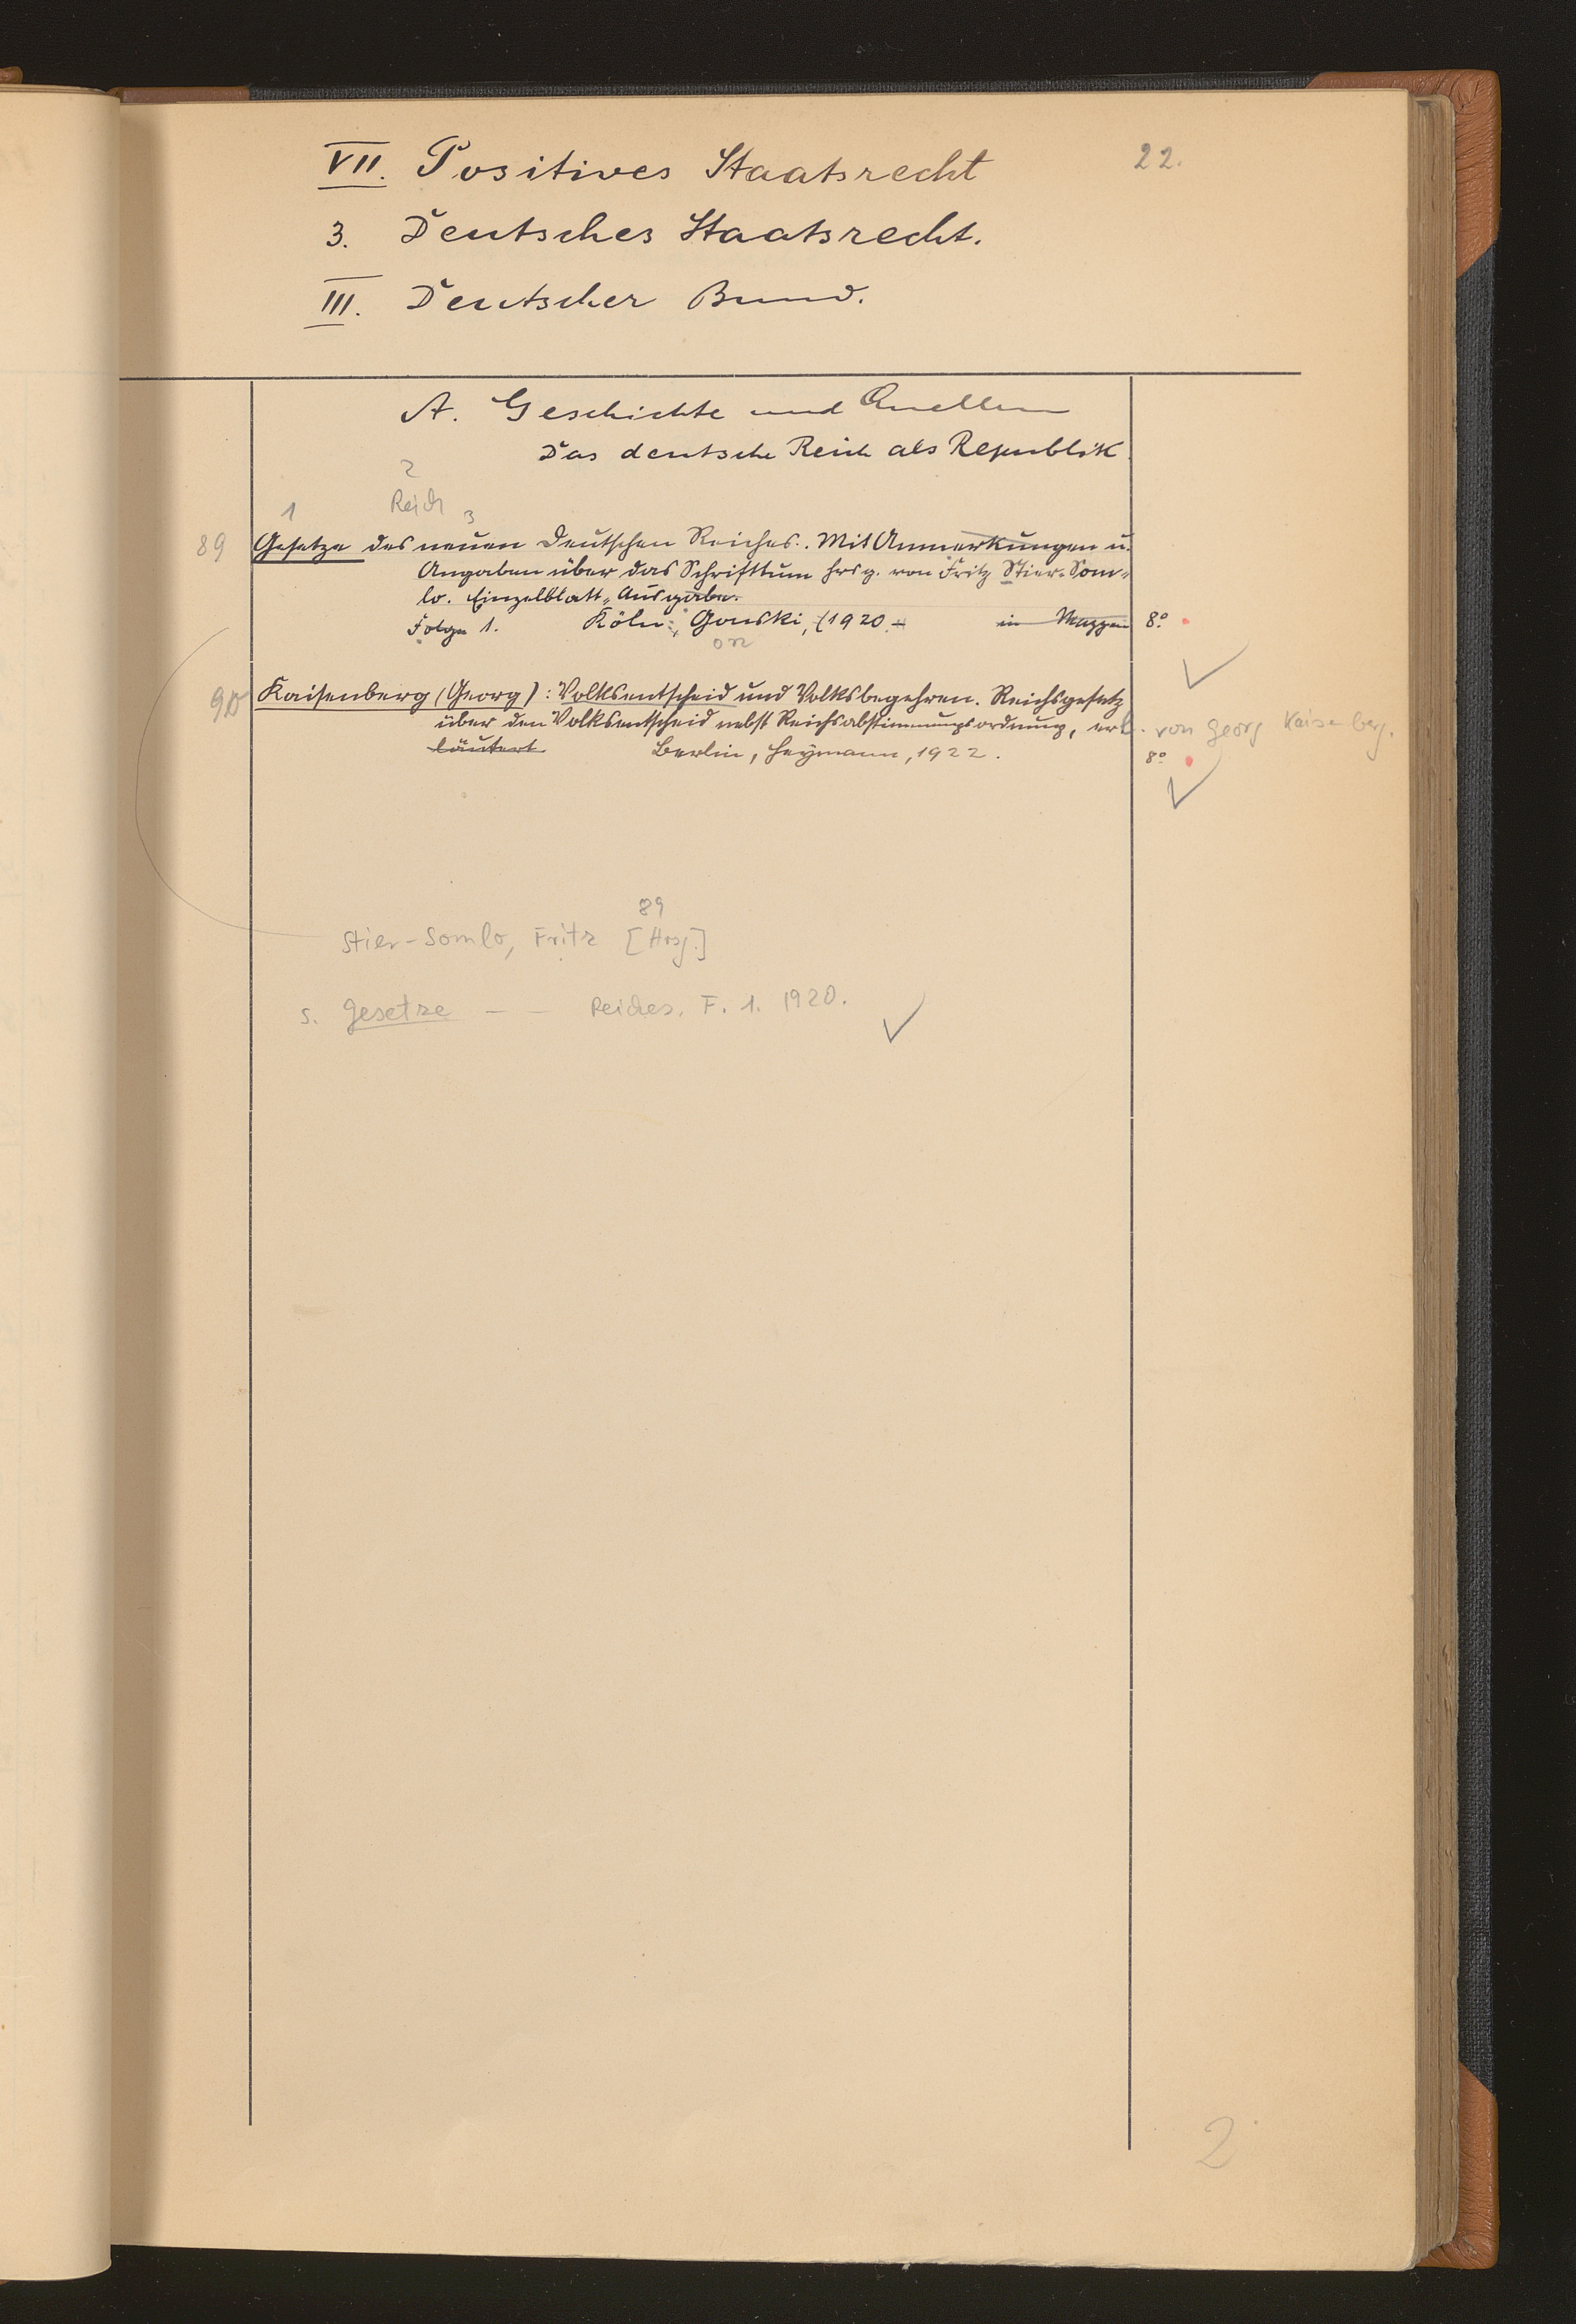 VII. Positives Staatsrecht
22.
3. Deutsches Staatsrecht.
III. Deutscher Bund.
A. Geschichte und Quellen
Das deutsche Reich als Republik
2
1 Reich 3
89 Gesetze des neuen Deutschen Reiches. Mit Anmerkungen u.
Angaben über das Schrifttum hrsg. von Fritz Stier-Som-
lo. Einzelblatt-Ausgabe.
Folge 1. Köln: Gonski, (1920 in Mappen 8°
on
90 Kaisenberg (Georg): Volksentscheid und Volksbegehren. Reichsgesetz
über den Volksentscheid nebst Reichsabstimmungsordnung, erl. von Georg Kaisenberg.
läutert Berlin, Heymann, 1922. 8°
89
Stier-Somlo, Fritz [Hrsg.]
s. Gesetze — — Reiches. F. 1. 1920.
2